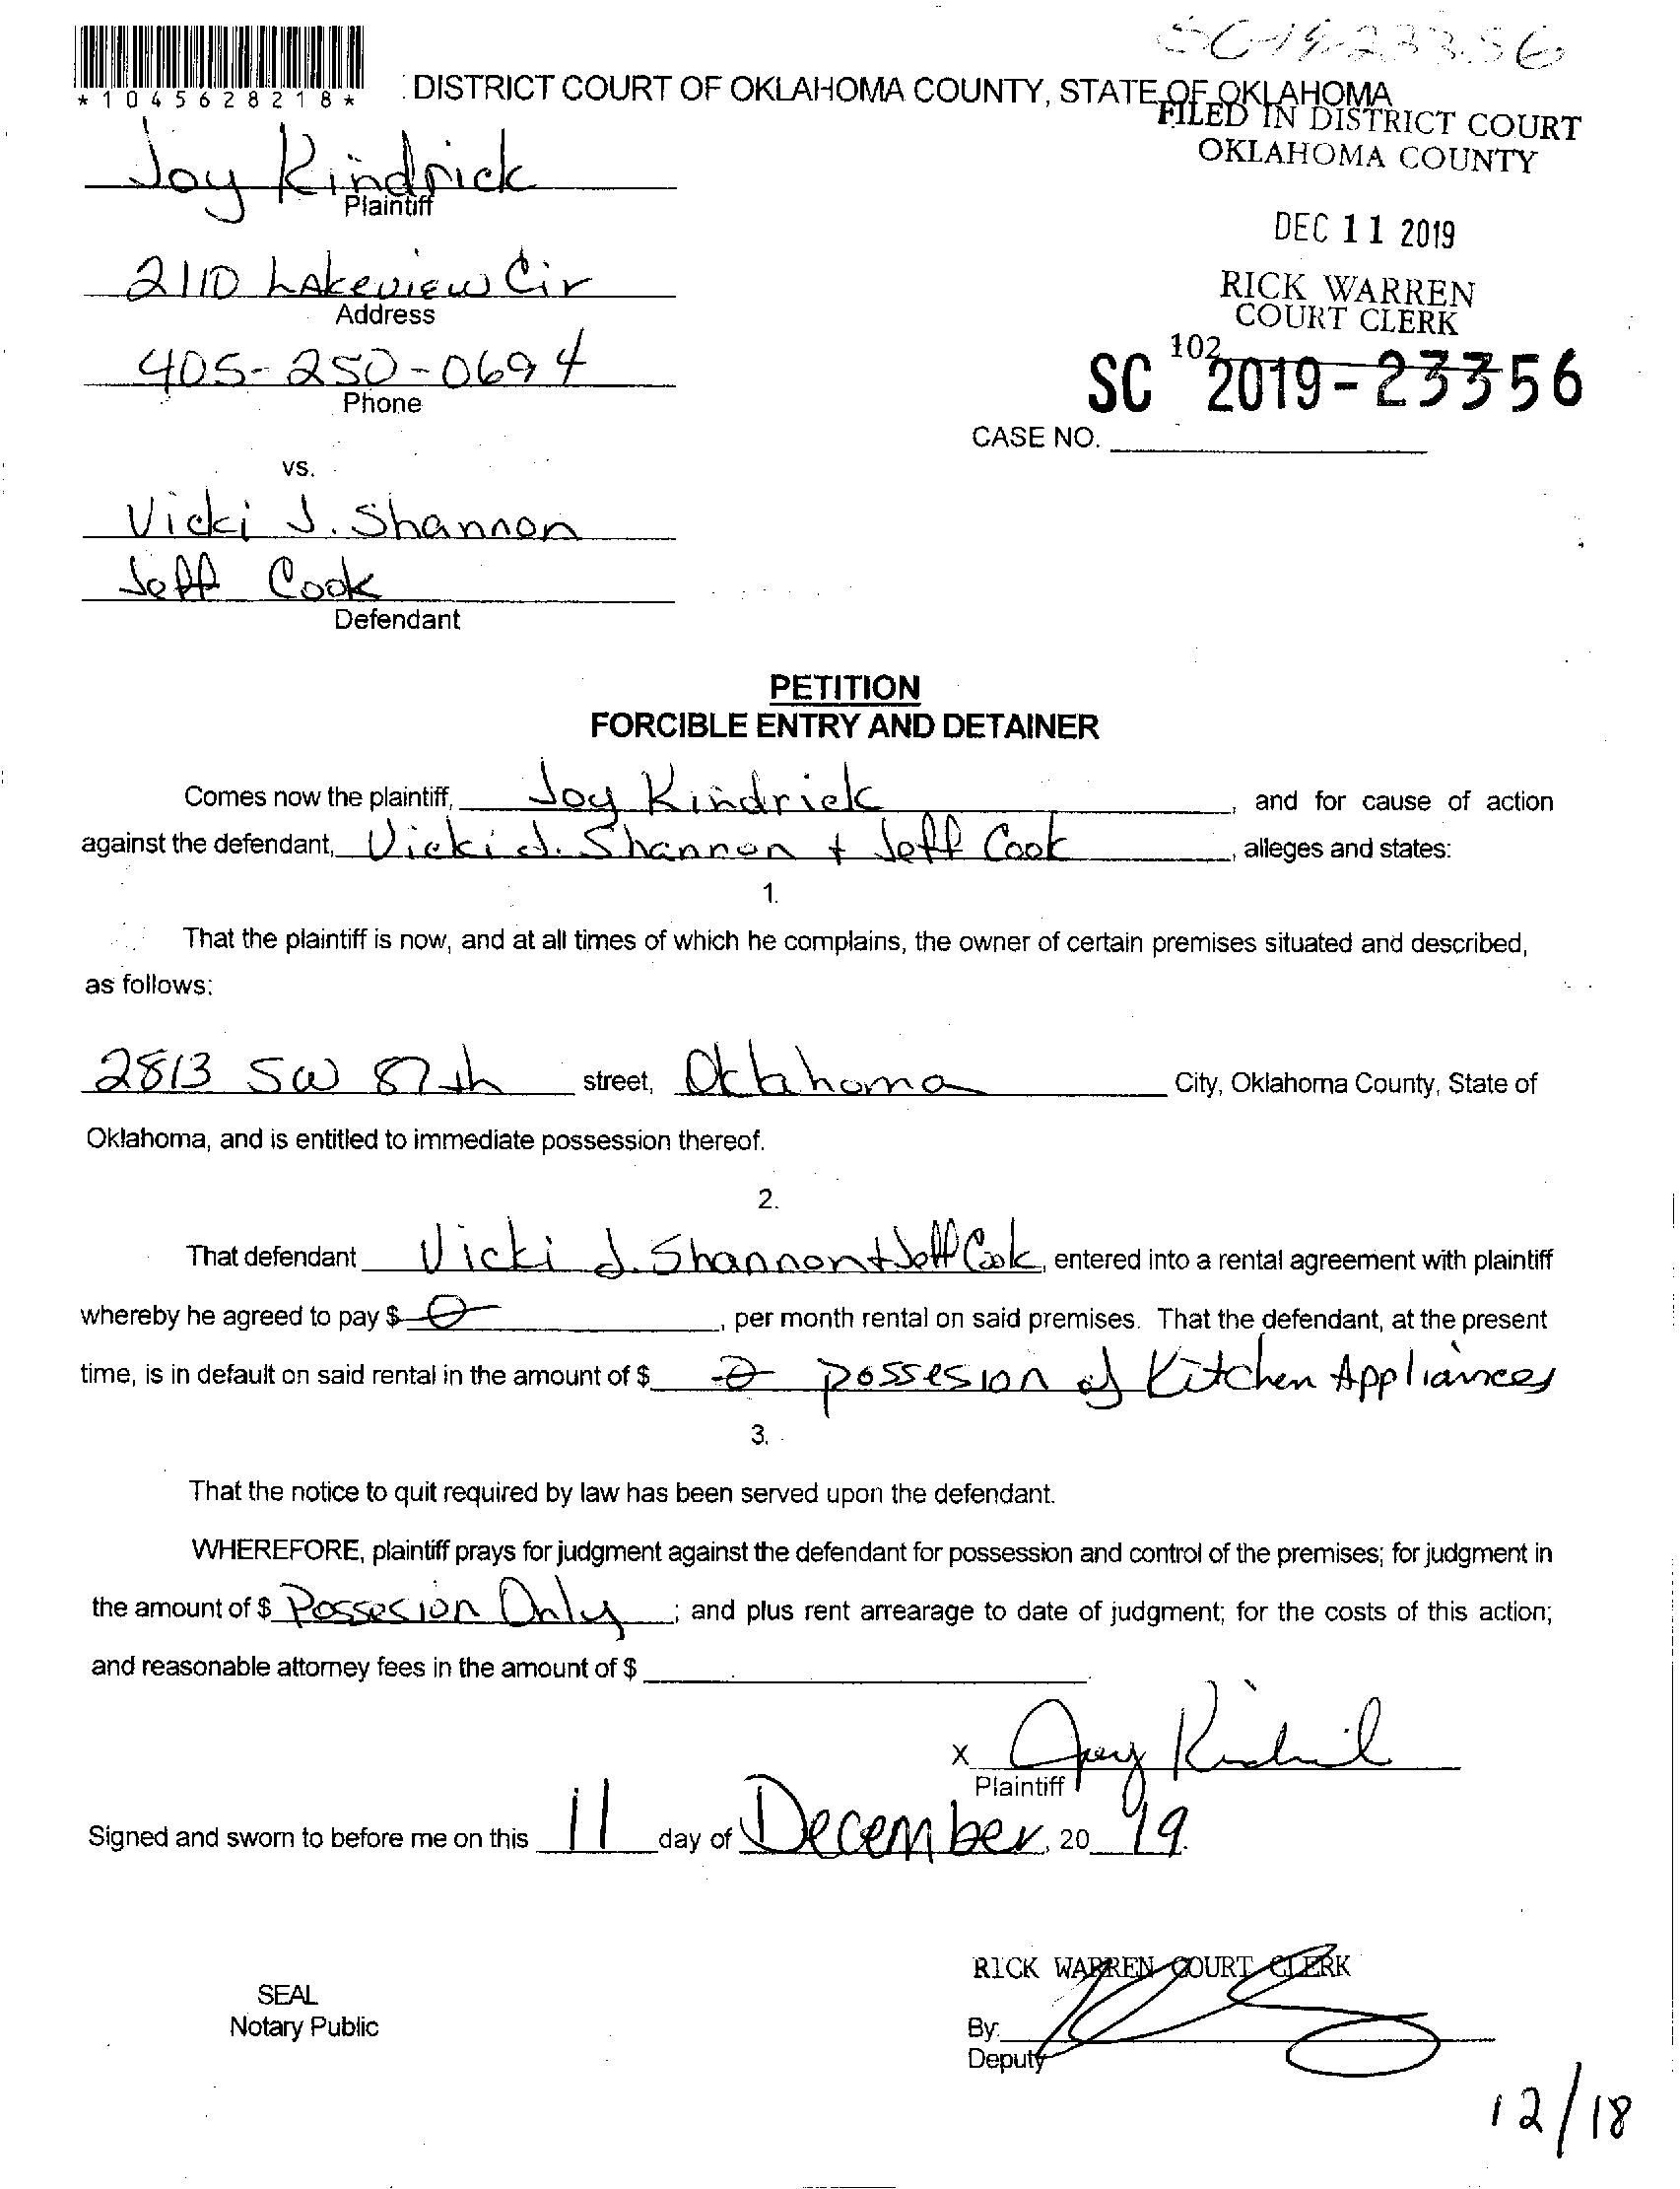 SC-19-23356
*1045628218*
DISTRICT COURT OF OKLAHOMA COUNTY, STATE OF OKLAHOMA
FILED IN DISTRICT COURT
OKLAHOMA COUNTY
Joy Kindrick
Plaintiff
DEC 11 2019
2110 Lakeview Cir
Address
RICK WARREN
COURT CLERK
405-250-0694
Phone
102
SC 2019-23356
CASE NO.
vs.
Vicki J. Shannon
Jeff Cook
Defendant
PETITION
FORCIBLE ENTRY AND DETAINER
Comes now the plaintiff, Joy Kindrick, and for cause of action
against the defendant, Vicki J. Shannon + Jeff Cook, alleges and states:
1.
That the plaintiff is now, and at all times of which he complains, the owner of certain premises situated and described,
as follows:
2813 SW 87th street, Oklahoma City, Oklahoma County, State of
Oklahoma, and is entitled to immediate possession thereof.
2.
That defendant Vicki J. Shannon + Jeff Cook, entered into a rental agreement with plaintiff
whereby he agreed to pay $ 0, per month rental on said premises. That the defendant, at the present
time, is in default on said rental in the amount of $ 0 possesion of Kitchen Appliances
3.
That the notice to quit required by law has been served upon the defendant.
WHEREFORE, plaintiff prays for judgment against the defendant for possession and control of the premises; for judgment in
the amount of $ Possesion Only; and plus rent arrearage to date of judgment; for the costs of this action;
and reasonable attorney fees in the amount of $
x Joy Kindrick
Plaintiff
Signed and sworn to before me on this 11 day of December, 20 19.
RICK WARREN COURT CLERK
SEAL
Notary Public
By:
Deputy
12/18